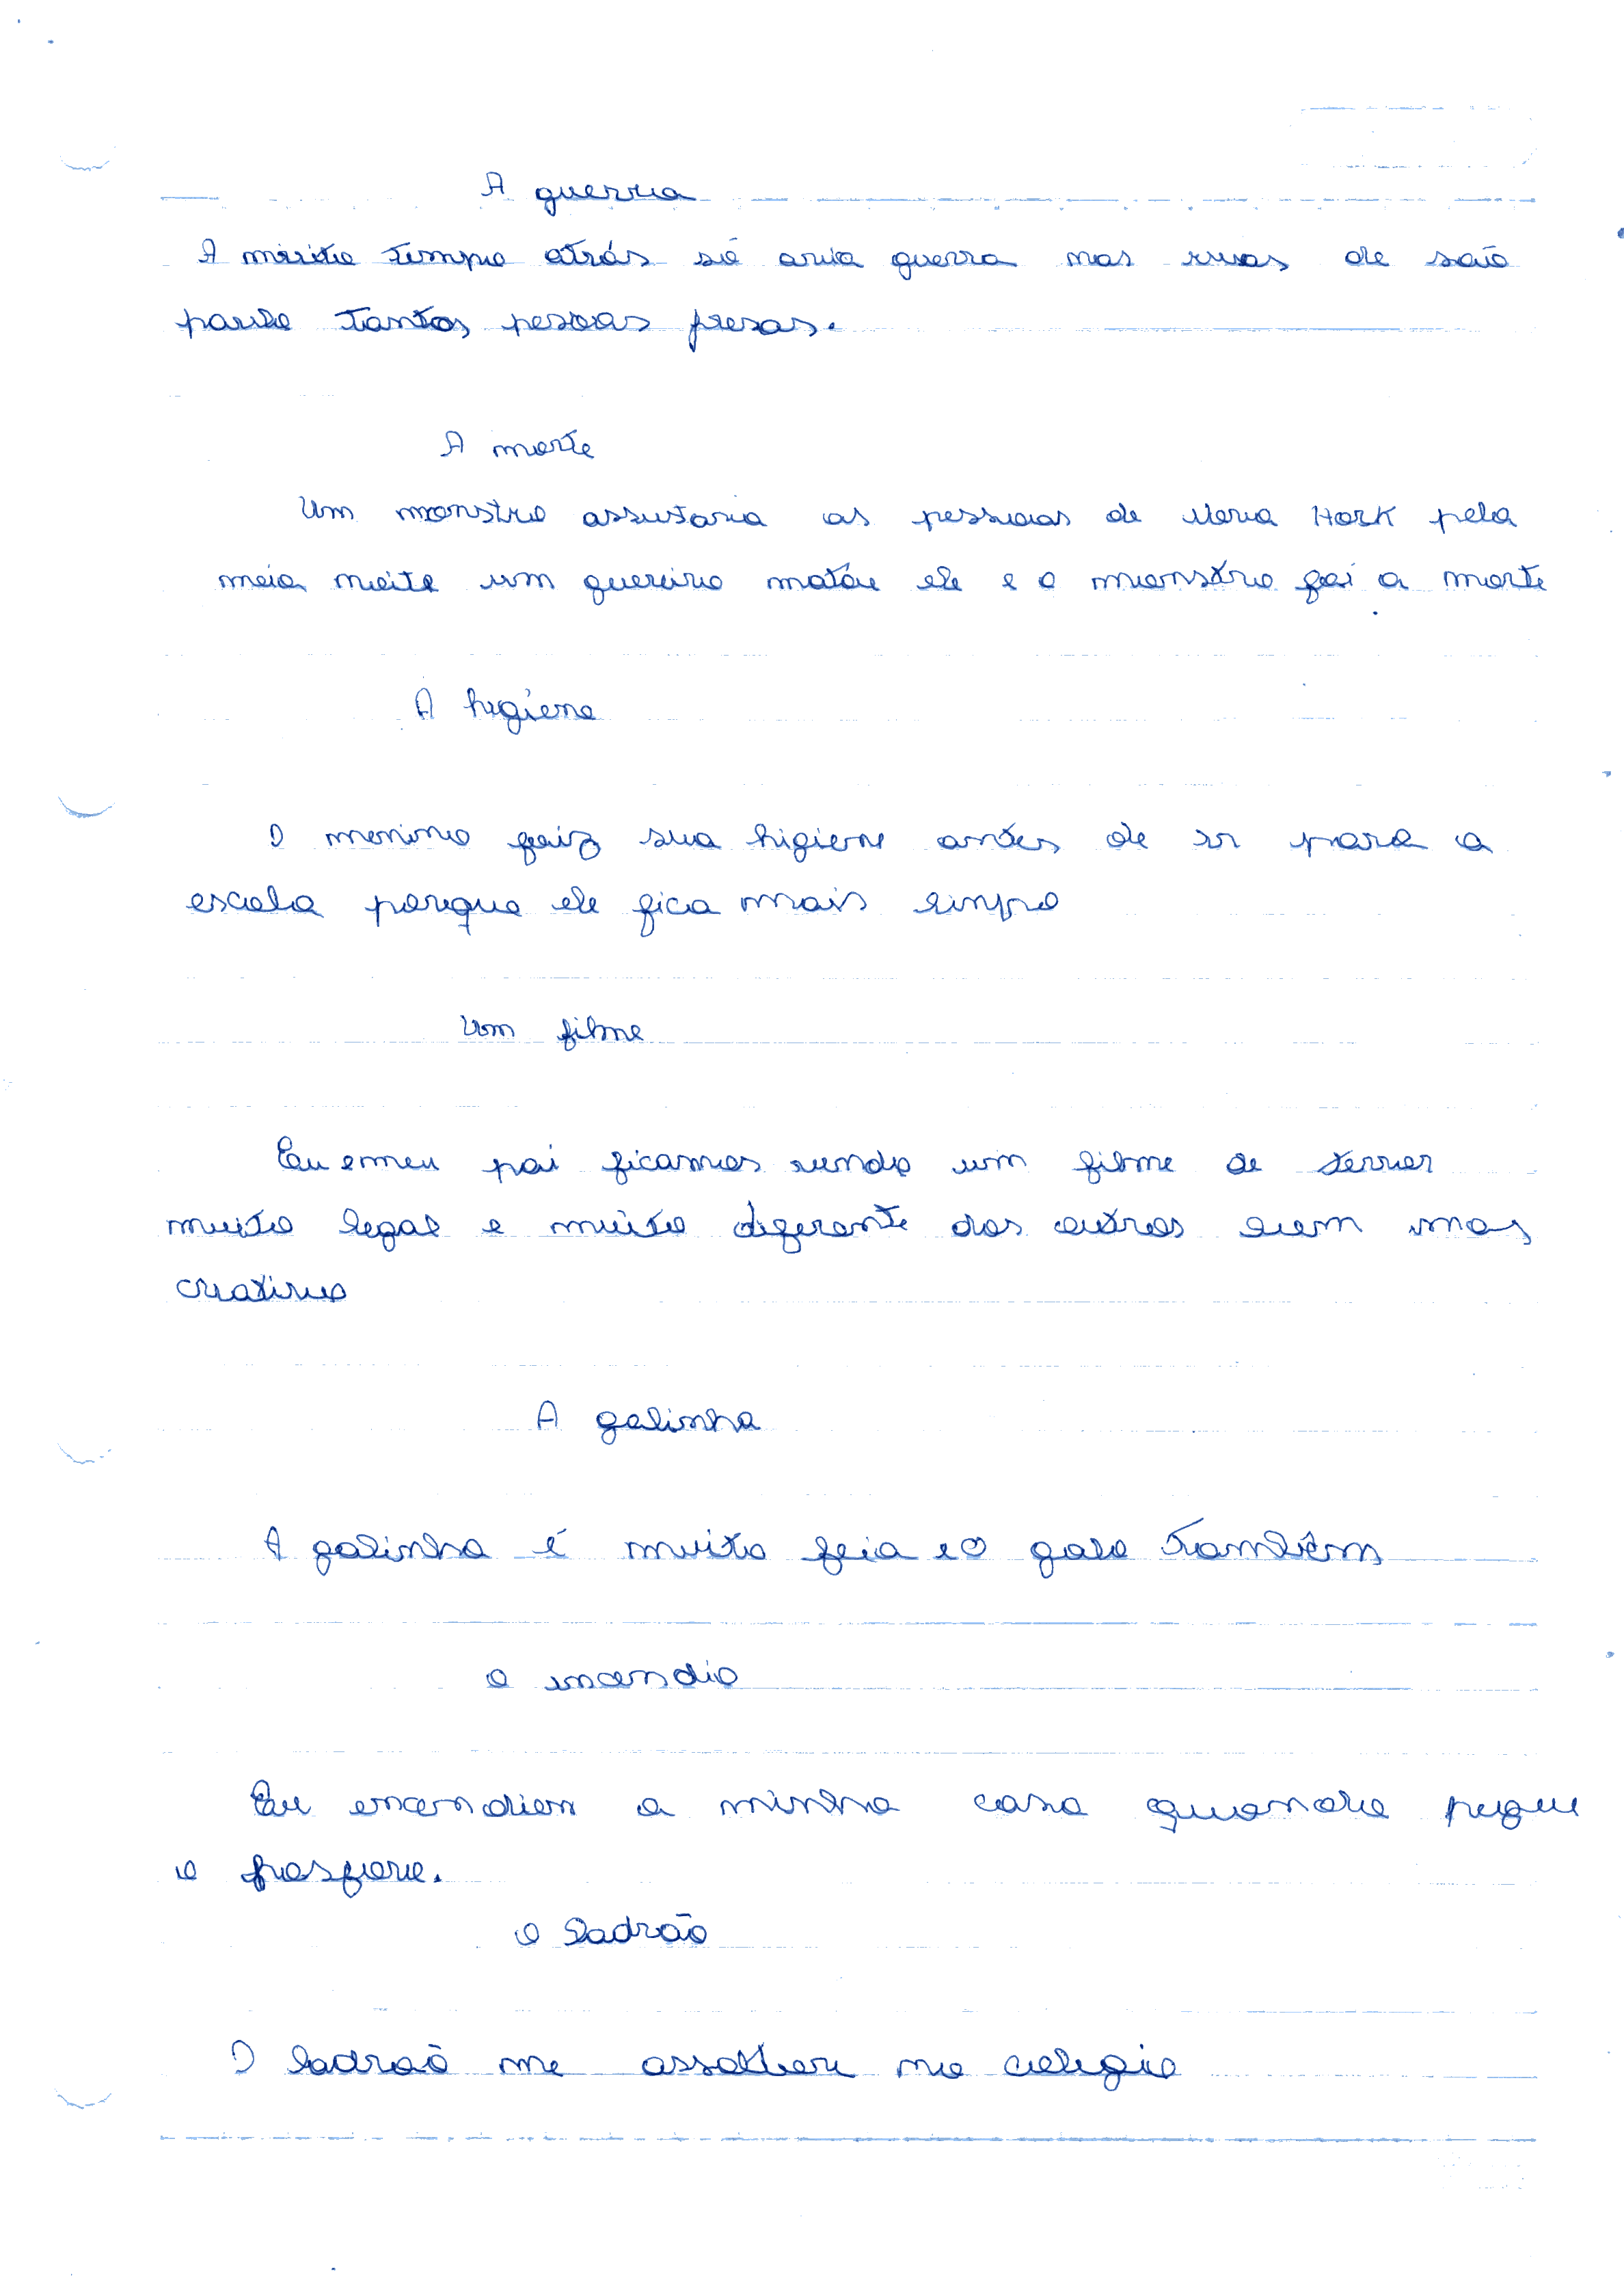 A guerra
A muito tempo atrás só avia guerra nas ruas de saõ
paulo tantas pessoas presas.
A morte
Um monstro assutava as pessoas de Nova Hork pela
meia noite um guereiro matou ele e o monstro foi a morte
A higiene
O menino faiz sua higiene antes de ir para a
escola porque ele fica mais limpo
Um filme
Eu emeu pai ficamos vendo um filme de terror
muito legal e muito diferente dos outros bem mas
criativo
A galinha
A galinha é muito feia e o galo também
o incendio
Eu encendiou a minha casa quando pegue
o fosforo.
o ladrão
O ladraõ me assaltou no colegio